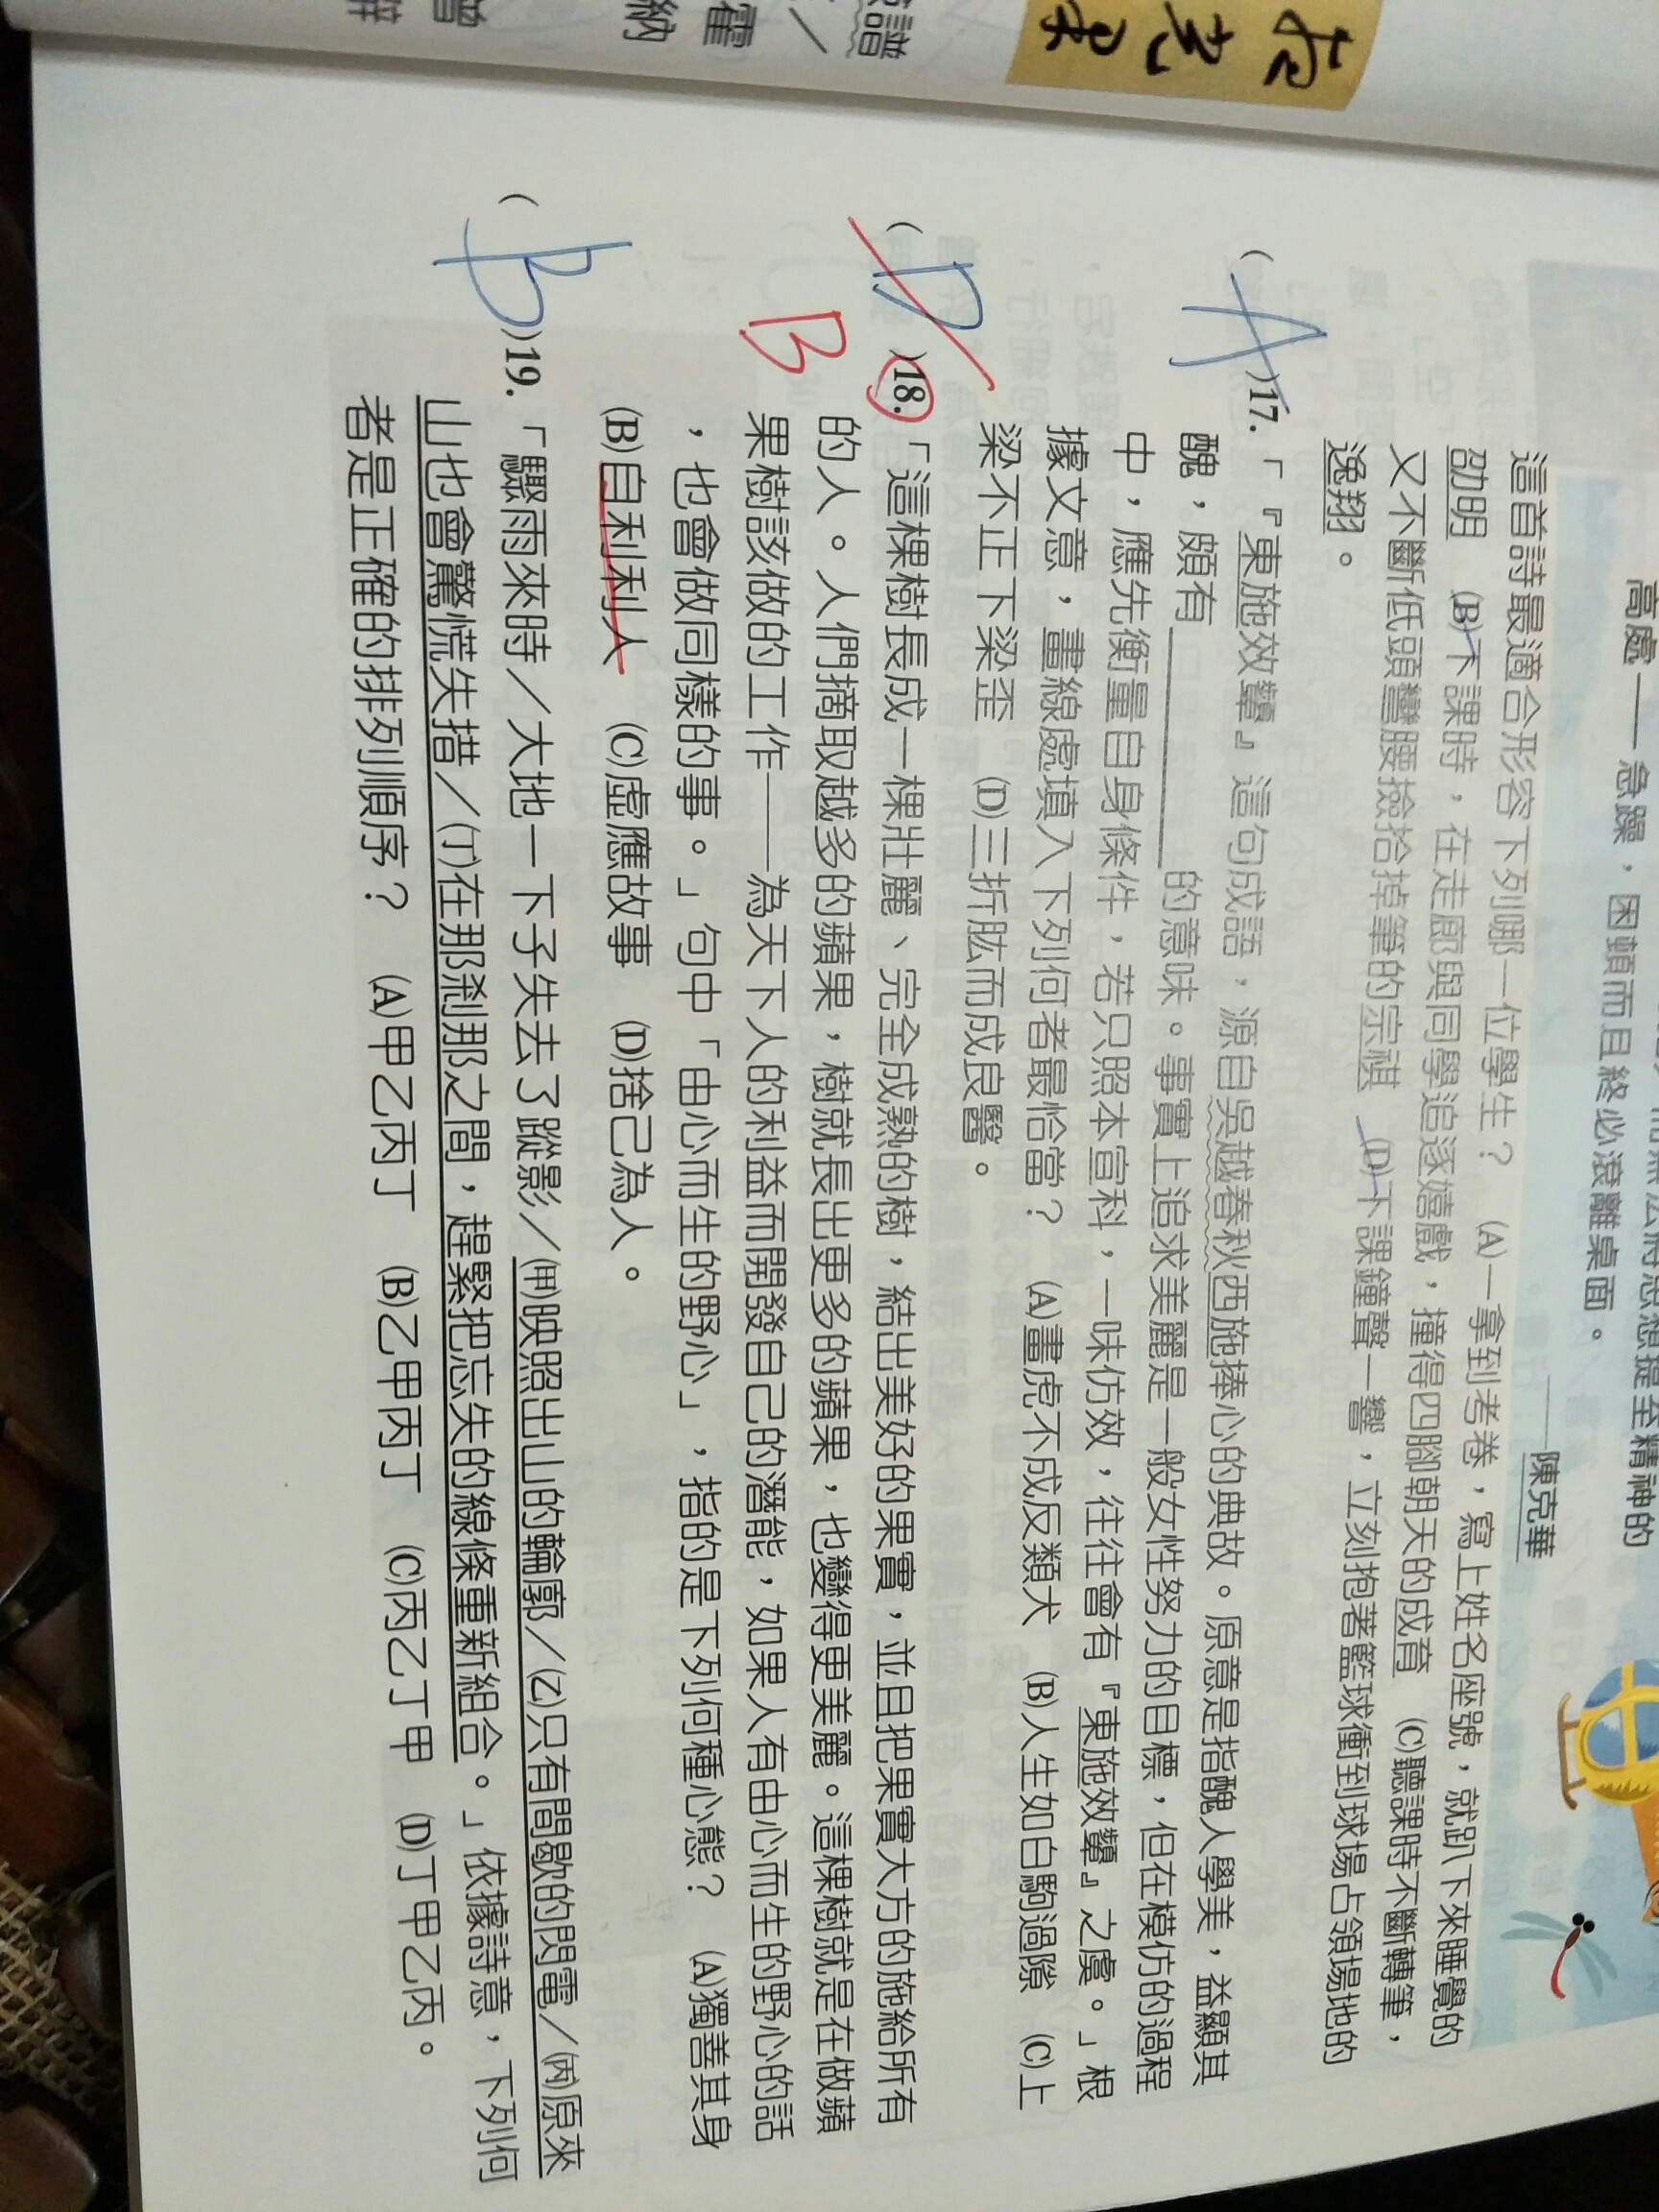 高處——急躁，困頓而且終必滾離桌面。
——陳克華
這首詩最適合形容下列哪一位學生？　(A)一拿到考卷，寫上姓名座號，就趴下來睡覺的
劭明　(B)下課時，在走廊與同學追逐嬉戲，撞得四腳朝天的成育　(C)聽課時不斷轉筆，
又不斷低頭彎腰撿拾掉筆的宗祺　(D)下課鐘聲一響，立刻抱著籃球衝到球場占領場地的
逸翔。
( A )17.「『東施效顰』這句成語，源自吳越春秋西施捧心的典故。原意是指醜人學美，益顯其
醜，頗有＿＿＿＿的意味。事實上追求美麗是一般女性努力的目標，但在模仿的過程
中，應先衡量自身條件，若只照本宣科，一味仿效，往往會有『東施效顰』之虞。」根
據文意，畫線處填入下列何者最恰當？　(A)畫虎不成反類犬　(B)人生如白駒過隙　(C)上
梁不正下梁歪　(D)三折肱而成良醫。
( D )18.「這棵樹長成一棵壯麗、完全成熟的樹，結出美好的果實，並且把果實大方的施給所有
B
的人。人們摘取越多的蘋果，樹就長出更多的蘋果，也變得更美麗。這棵樹就是在做蘋
果樹該做的工作——為天下人的利益而開發自己的潛能，如果人有由心而生的野心的話
，也會做同樣的事。」句中「由心而生的野心」，指的是下列何種心態？　(A)獨善其身
(B)自利利人　(C)虛應故事　(D)捨己為人。
( B )19.「驟雨來時／大地一下子失去了蹤影／(甲)映照出山的輪廓／(乙)只有間歇的閃電／(丙)原來
山也會驚慌失措／(丁)在那剎那之間，趕緊把忘失的線條重新組合。」依據詩意，下列何
者是正確的排列順序？　(A)甲乙丙丁　(B)乙甲丙丁　(C)丙乙丁甲　(D)丁甲乙丙。